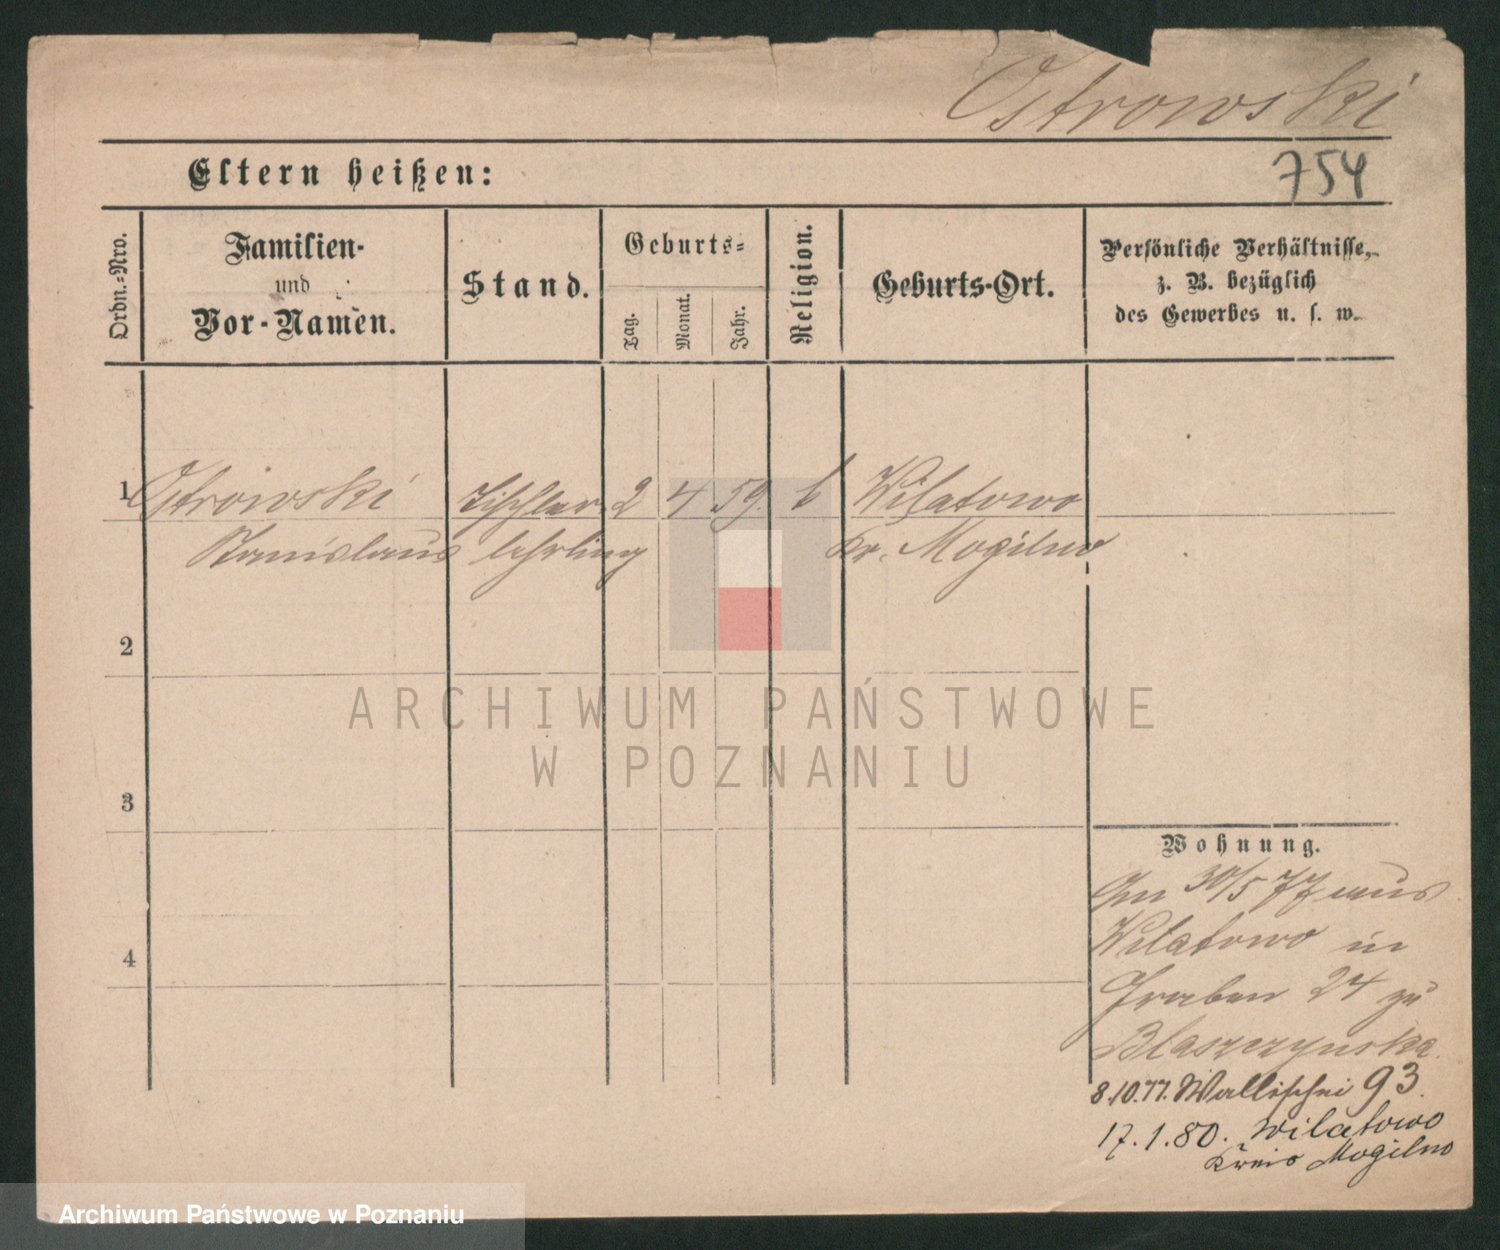 Ostrowski
Eltern heißen:
754
Ordn.-Nro.
Familien-
und
Vor-Namen.
Stand.
Geburts-
Tag.
Monat.
Jahr.
Religion.
Geburts-Ort.
Persönliche Verhältnisse,
z. B. bezüglich
des Gewerbes u. s. w.
1 Ostrowski Tischler 2 4 59. k Wilatowo
Stanislaus lehrling Kr. Mogilno
2
3
4
ARCHIWUM PAŃSTWOWE
W POZNANIU
Wohnung.
Im 30/5 77 aus
Wilatowo in
Graben 24 zu
Blaszczynska.
8.10.77. Wallischei 93.
17.1.80. Wilatowo
Kreis Mogilno
Archiwum Państwowe w Poznaniu